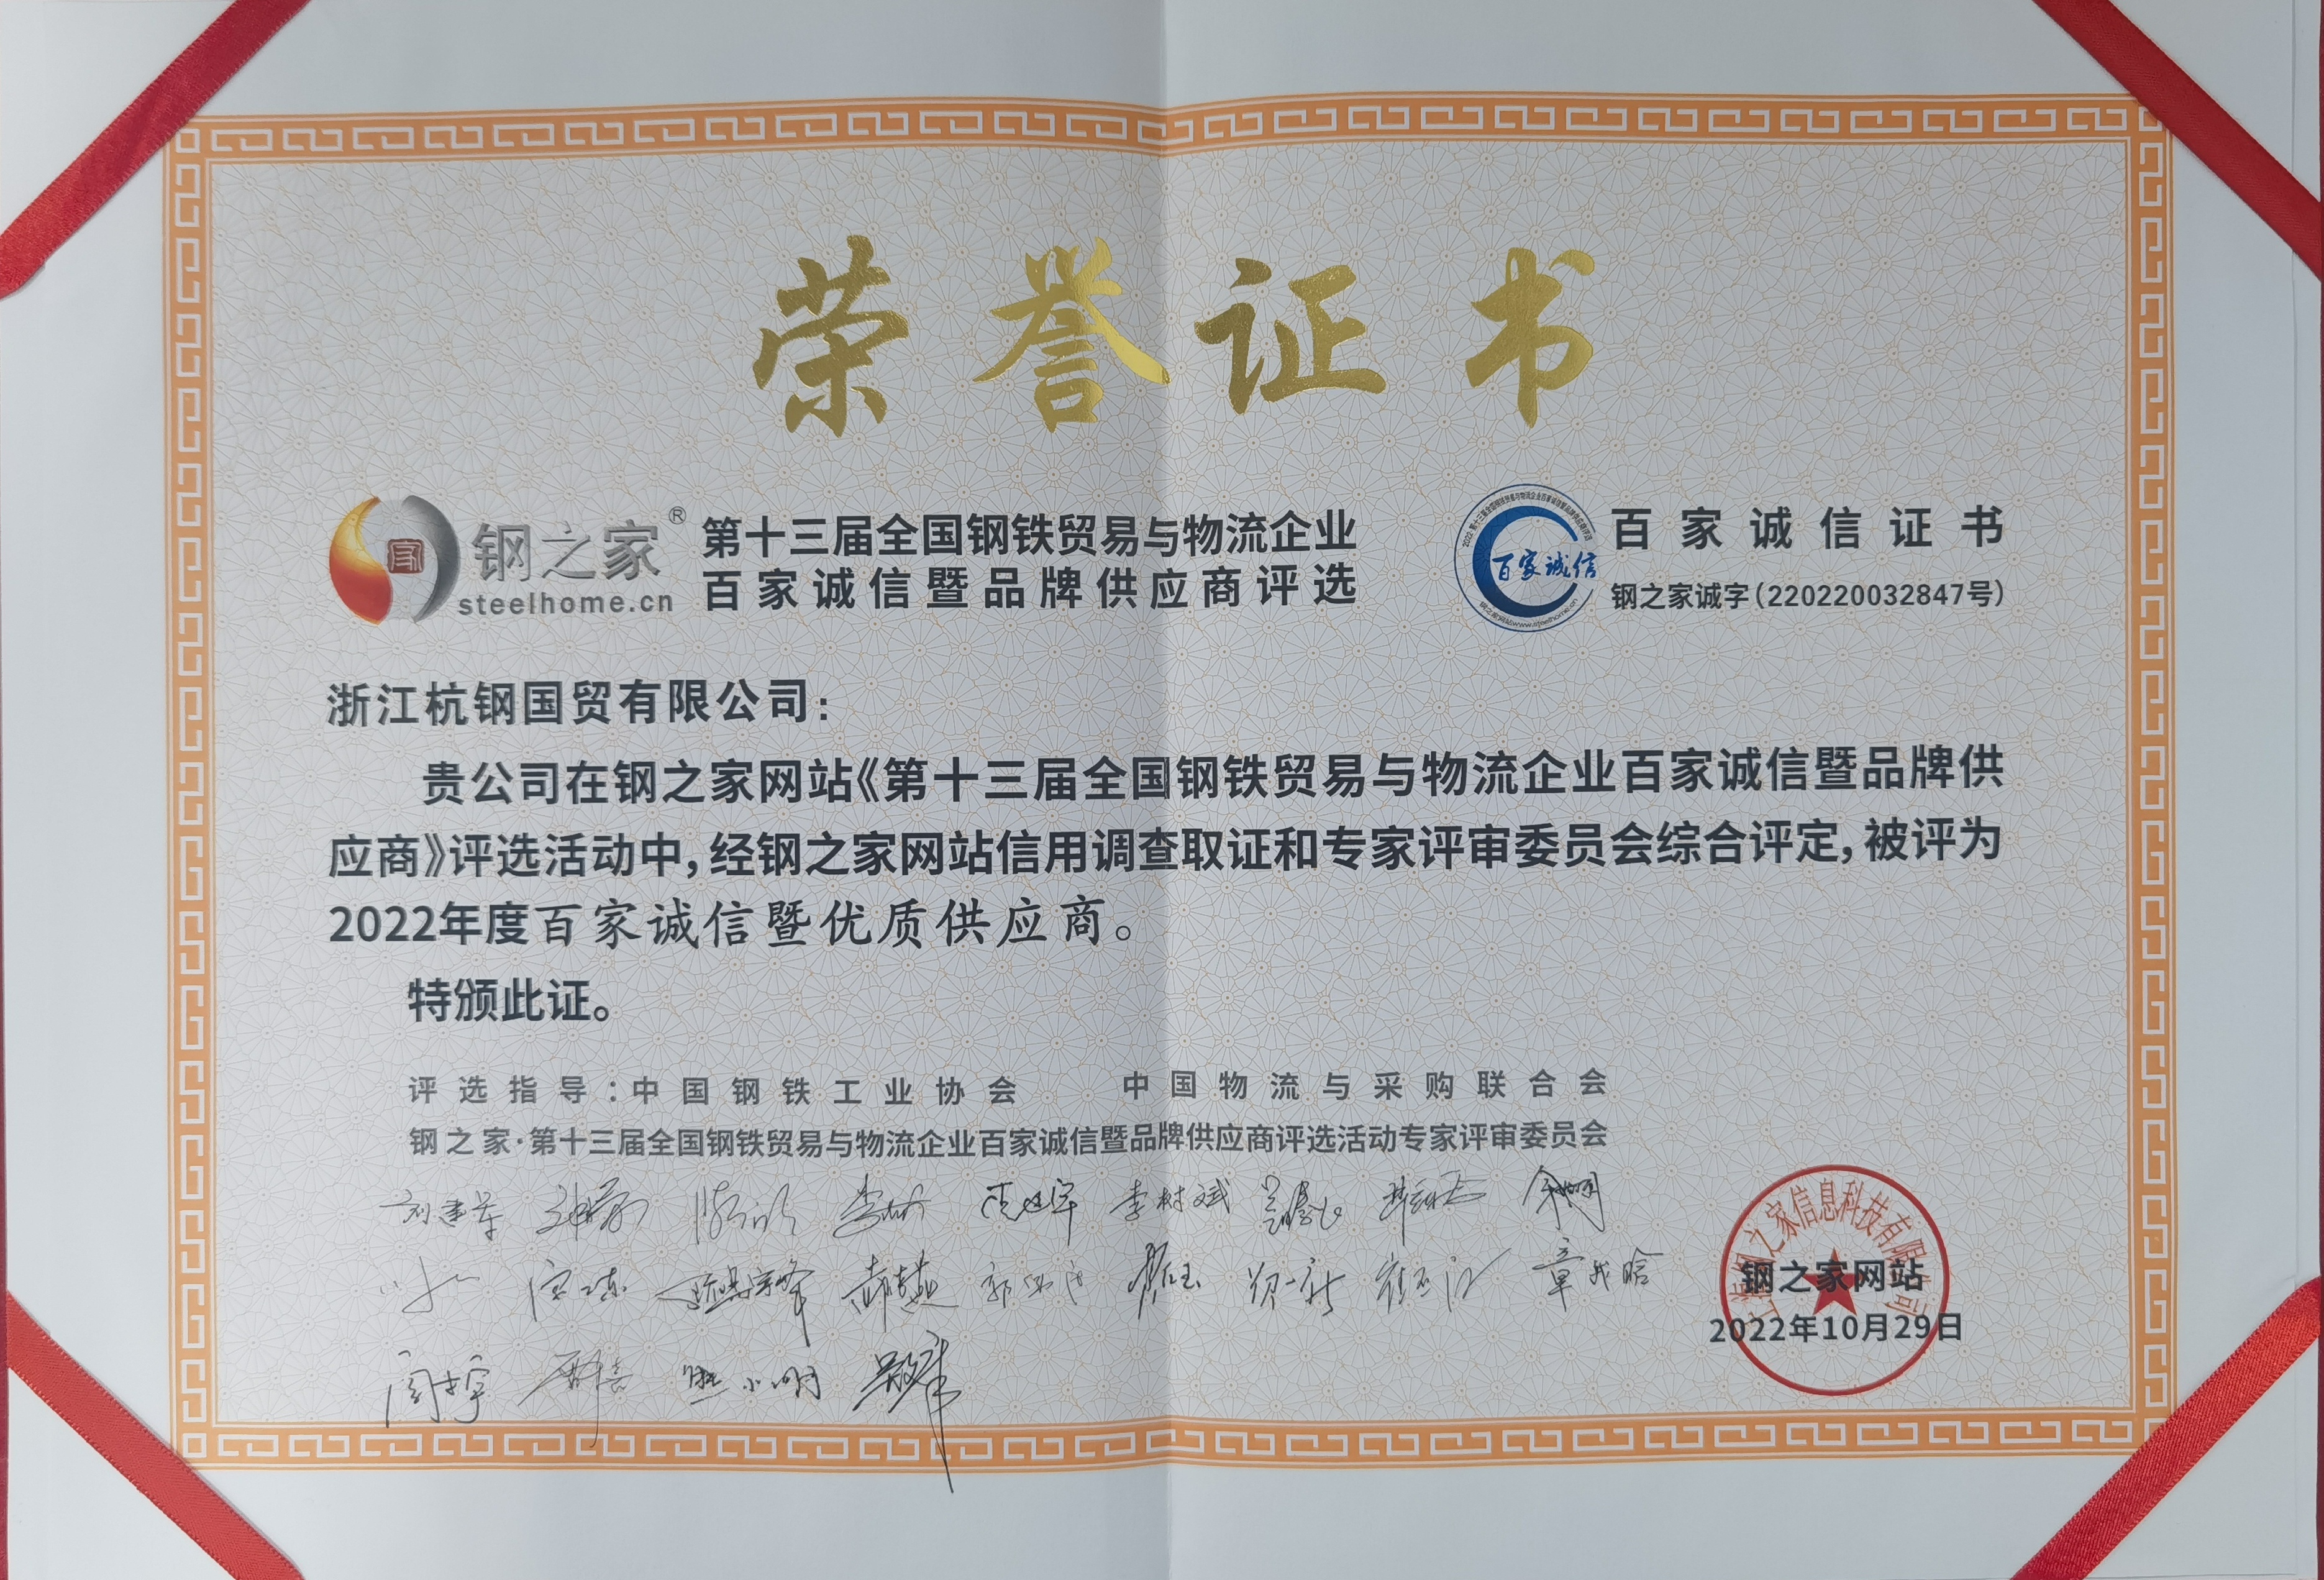 荣誉证书
钢之家®
steelhome.cn
第十三届全国钢铁贸易与物流企业
百家诚信暨品牌供应商评选
百家诚信
百家诚信证书
钢之家诚字(220220032847号)
浙江杭钢国贸有限公司:
贵公司在钢之家网站《第十三届全国钢铁贸易与物流企业百家诚信暨品牌供
应商》评选活动中,经钢之家网站信用调查取证和专家评审委员会综合评定,被评为
2022年度百家诚信暨优质供应商。
特颁此证。
评选指导:中国钢铁工业协会 中国物流与采购联合会
钢之家·第十三届全国钢铁贸易与物流企业百家诚信暨品牌供应商评选活动专家评审委员会
刘建军 李树斌
上海钢之家信息科技有限公司
钢之家网站
2022年10月29日